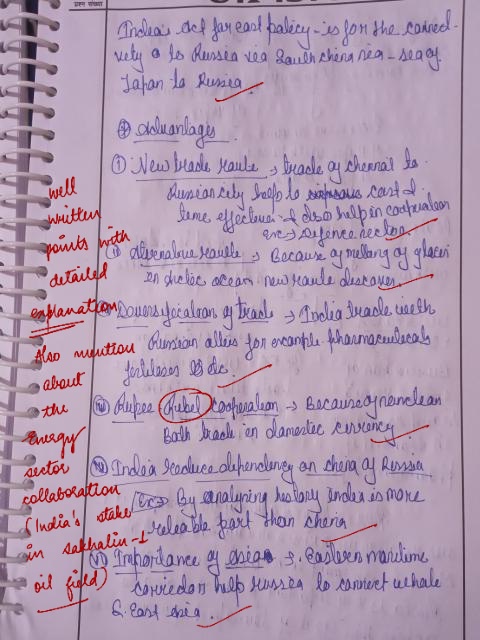 प्रश्न संख्या
India's Act far east policy - is for the connect-
ivity to Russia via South china sea - sea of
Japan to Russia
Advantages
(i) New trade route → trade of chennai to
Russian city help to cost &
time effective & also help in cooperation
Ex → Defence, nector
(ii) Alternative route → Because of melting of glacier
in Arctic ocean new route discover
Diversification of trade → India trade with
Russian allies for example pharmaceuticals
fertilisers etc.
(iv) Rupee Rubel cooperation →
Both trade in domestic currency
(v) India reduce dependency on china of Russia
Ex → By analysing history India is more
reliable part than china
(vi) Importance of Asia → Eastern maritime
corridor help russia to connect whole
S. East Asia
well
written
points with
detailed
explanation
Also mention
about
the
Energy
sector
collaboration
(India's stake
in sakhalin-1
oil field)